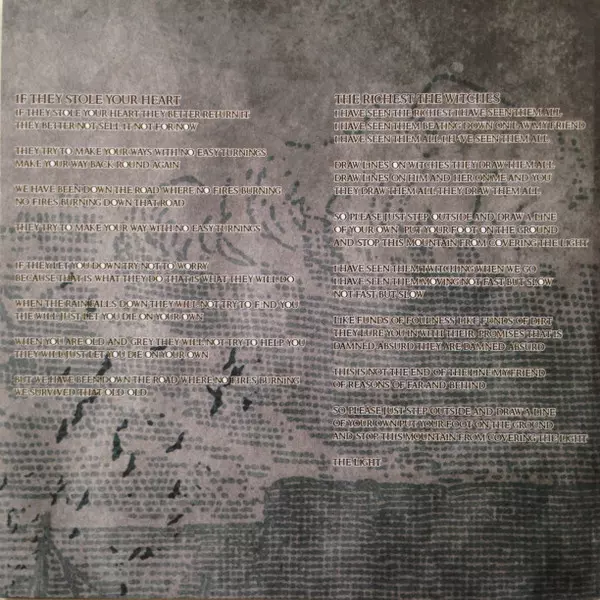 IF THEY STOLE YOUR HEART
IF THEY STOLE YOUR HEART THEY BETTER RETURN IT
THEY BETTER NOT SELL IT NOT FOR NOW
THEY TRY TO MAKE YOUR WAYS WITH NO EASY TURNINGS
MAKE YOUR WAY BACK ROUND AGAIN
WE HAVE BEEN DOWN THE ROAD WHERE NO FIRES BURNING
NO FIRES BURNING DOWN THAT ROAD
THEY TRY TO MAKE YOUR WAY WITH NO EASY TURNINGS
IF THEY LET YOU DOWN TRY NOT TO WORRY
BECAUSE THAT IS WHAT THEY DO THAT IS WHAT THEY WILL DO
WHEN THE RAIN FALLS DOWN THEY WILL NOT TRY TO FIND YOU
THE WILL JUST LET YOU DIE ON YOUR OWN
WHEN YOU ARE OLD AND GREY THEY WILL NOT TRY TO HELP YOU
THEY WILL JUST LET YOU DIE ON YOUR OWN
BUT WE HAVE BEEN DOWN THE ROAD WHERE NO FIRES BURNING
WE SURVIVED THAT OLD OLD
THE RICHEST THE WITCHES
I HAVE SEEN THE RICHEST I HAVE SEEN THEM ALL
I HAVE SEEN THEM BEATING DOWN ON MY FRIEND
I HAVE SEEN THEM ALL I HAVE SEEN THEM ALL
DRAW LINES ON WITCHES THEY DRAW THEM ALL
DRAW LINES ON HIM AND HER ON ME AND YOU
THEY DRAW THEM ALL THEY DRAW THEM ALL
SO PLEASE JUST STEP OUTSIDE AND DRAW A LINE
OF YOUR OWN PUT YOUR FOOT ON THE GROUND
AND STOP THIS MOUNTAIN FROM COVERING THE LIGHT
I HAVE SEEN THEM TWITCHING WHEN WE GO
I HAVE SEEN THEM MOVING NOT FAST BUT SLOW
NOT FAST BUT SLOW
LIKE FUNDS OF LIKE FUNDS OF DIRT
THEY LURE YOU IN WITH THEIR PROMISES THAT IS
DAMNED ABSURD THEY ARE DAMNED ABSURD
THIS IS NOT THE END OF THE LINE MY FRIEND
OF REASONS OF FAR AND BEHIND
SO PLEASE JUST STEP OUTSIDE AND DRAW A LINE
OF YOUR OWN PUT YOUR FOOT ON THE GROUND
AND STOP THIS MOUNTAIN FROM COVERING THE LIGHT
THE LIGHT